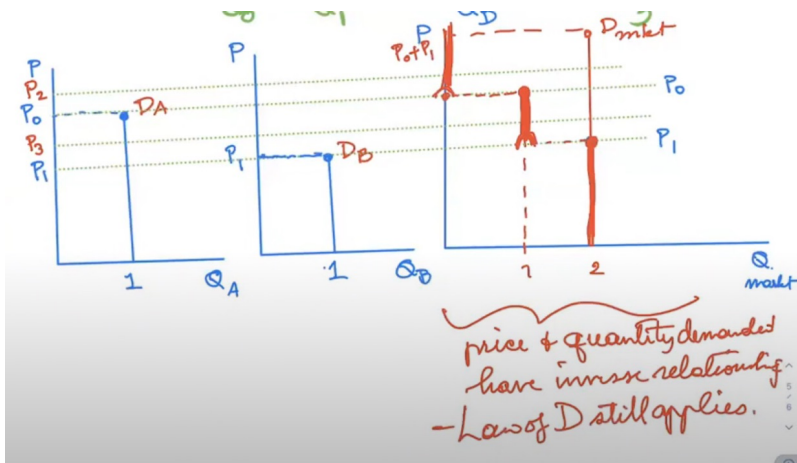 P
P₂
P₀
P₃
P₁
D_A
1
Q_A
P
P₁
D_B
1
Q_B
P
P₀+P₁
D mkt
P₀
P₁
1
2
Q
market
price & quantity demanded
have inverse relationship
- Law of D still applies.
5
/
6